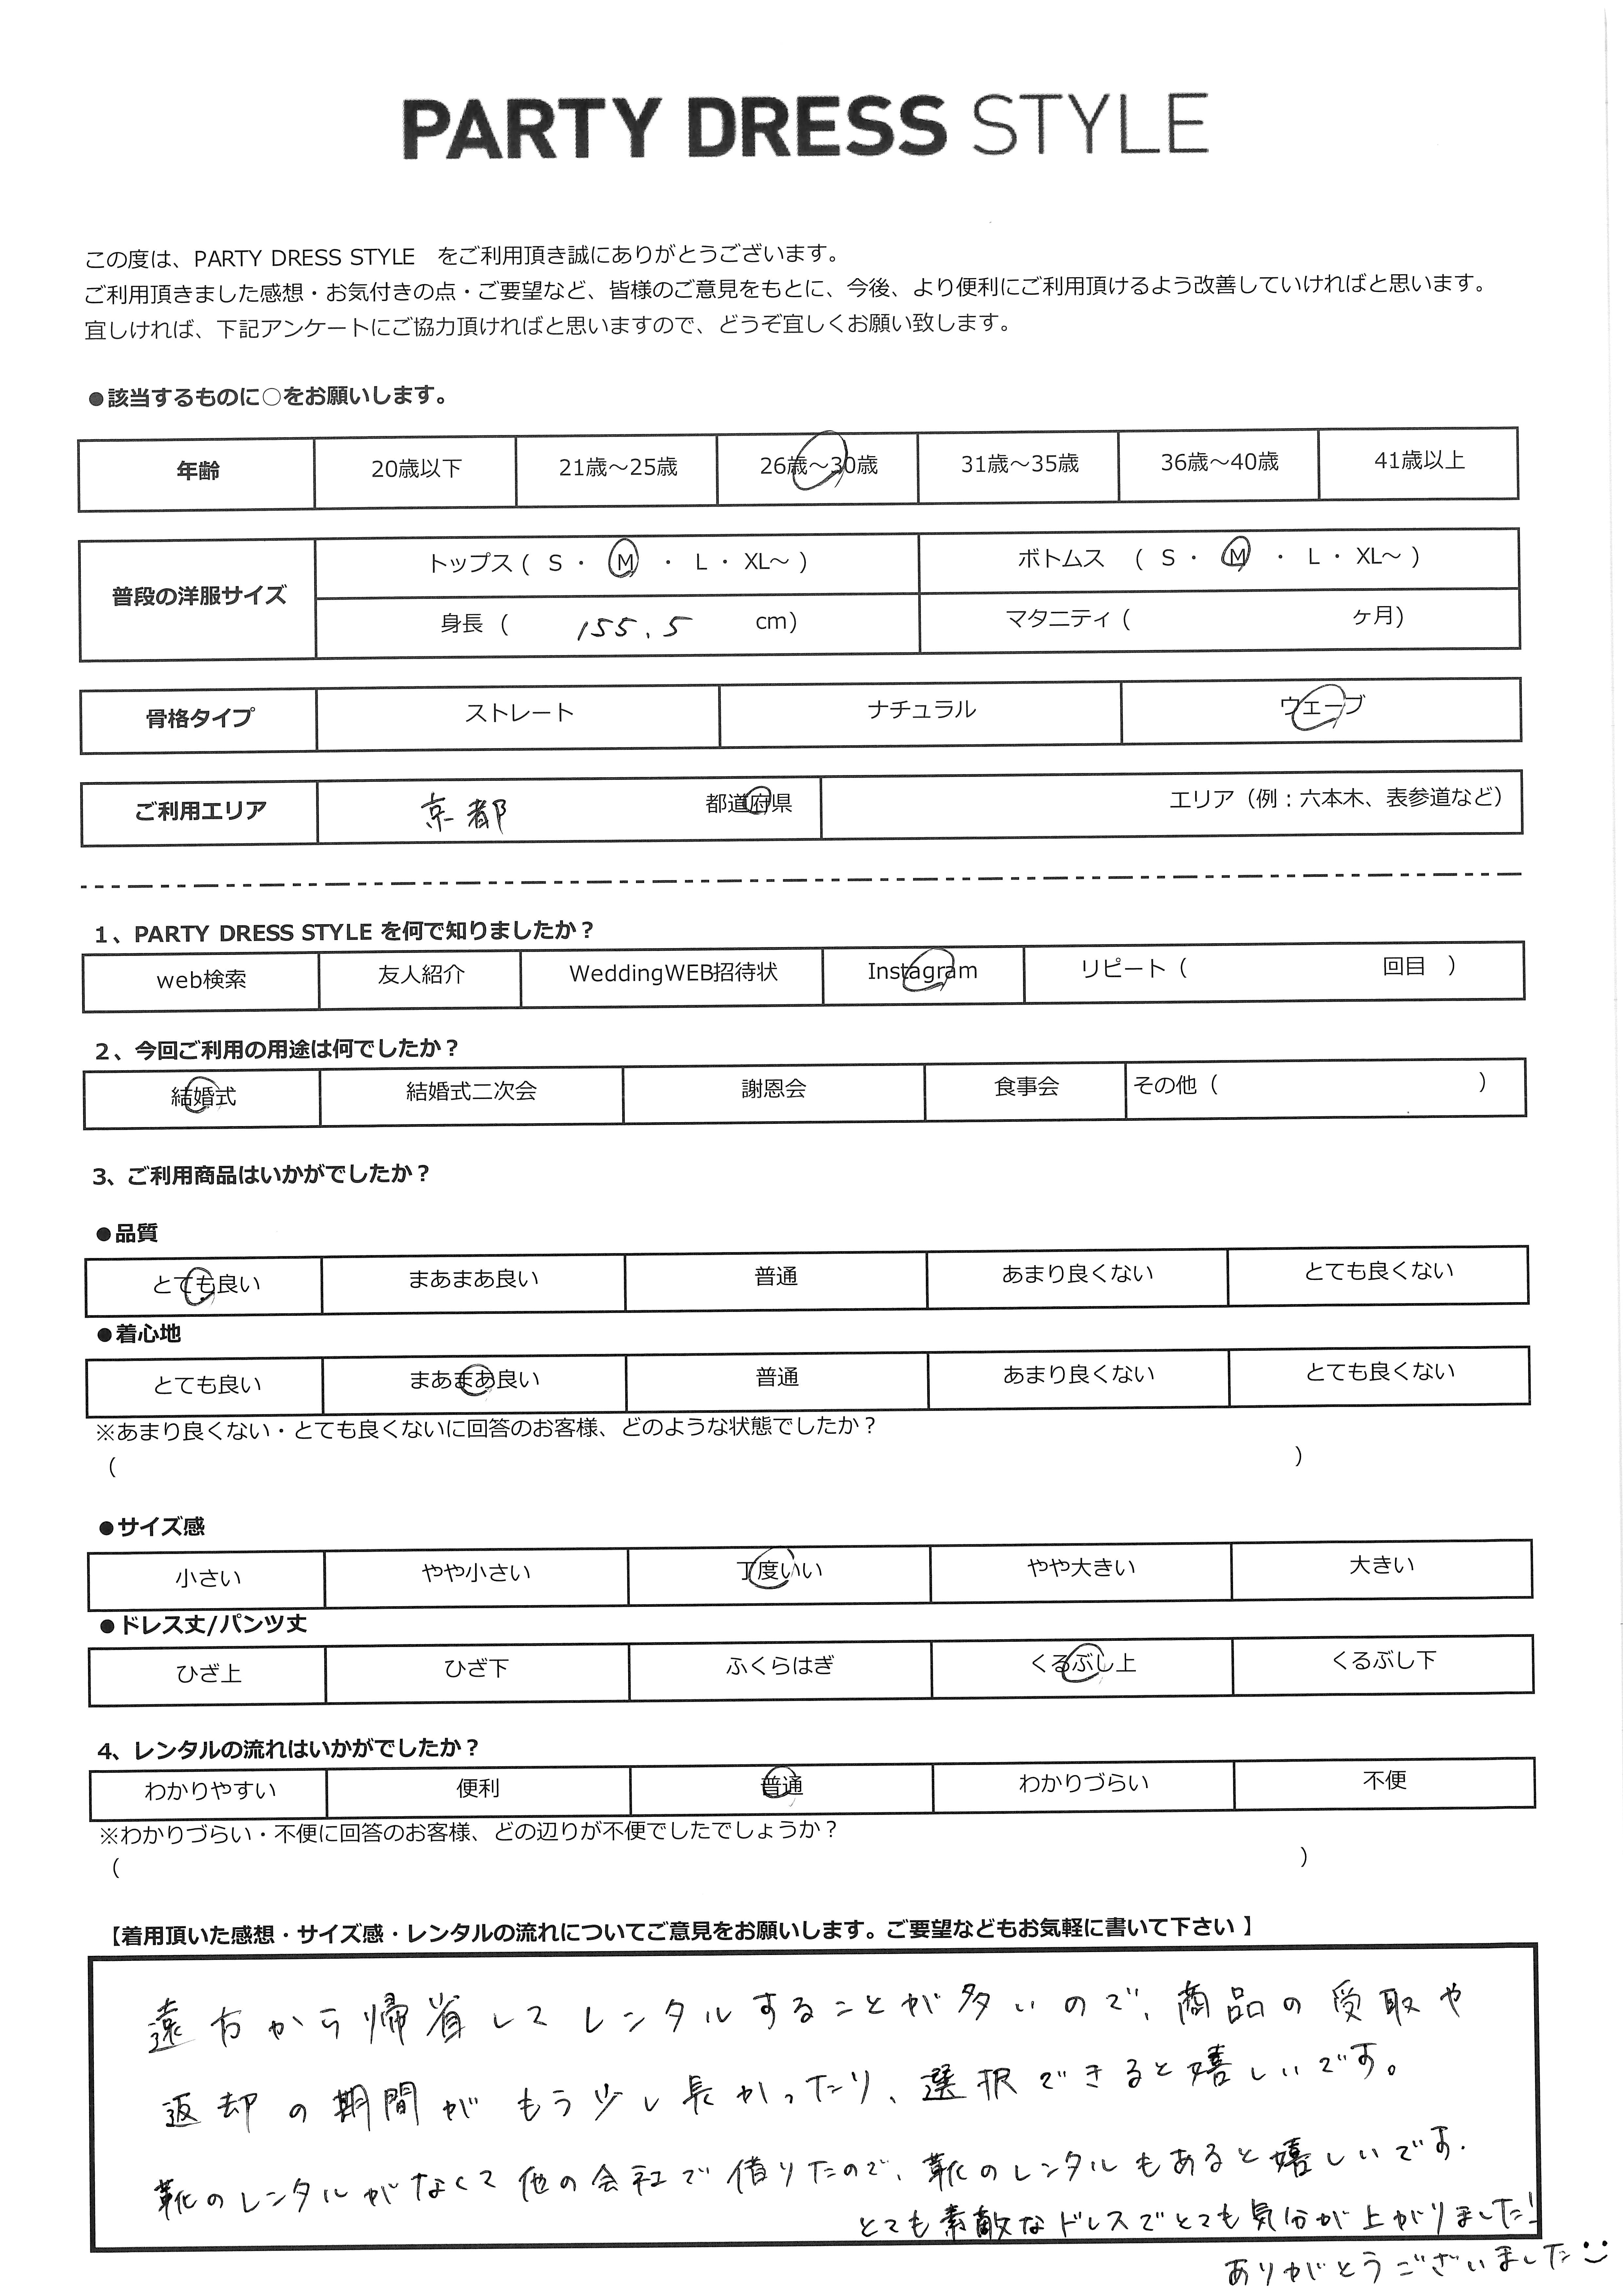 PARTY DRESS STYLE
この度は、PARTY DRESS STYLE をご利用頂き誠にありがとうございます。
ご利用頂きました感想・お気付きの点・ご要望など、皆様のご意見をもとに、今後、より便利にご利用頂けるよう改善していければと思います。
宜しければ、下記アンケートにご協力頂ければと思いますので、どうぞ宜しくお願い致します。
●該当するものに○をお願いします。
年齢 20歳以下 21歳～25歳 26歳～30歳 31歳～35歳 36歳～40歳 41歳以上
普段の洋服サイズ
トップス ( S ・ M ・ L ・ XL～ ) ボトムス ( S ・ M ・ L ・ XL～ )
身長 ( 155.5 cm) マタニティ ( ヶ月)
骨格タイプ ストレート ナチュラル ウェーブ
ご利用エリア 京都 都道府県 エリア（例：六本木、表参道など）
1、PARTY DRESS STYLE を何で知りましたか？
web検索 友人紹介 WeddingWEB招待状 Instagram リピート（ 回目 ）
2、今回ご利用の用途は何でしたか？
結婚式 結婚式二次会 謝恩会 食事会 その他（ ）
3、ご利用商品はいかがでしたか？
●品質
とても良い まあまあ良い 普通 あまり良くない とても良くない
●着心地
とても良い まあまあ良い 普通 あまり良くない とても良くない
※あまり良くない・とても良くないに回答のお客様、どのような状態でしたか？
（ ）
●サイズ感
小さい やや小さい 丁度いい やや大きい 大きい
●ドレス丈/パンツ丈
ひざ上 ひざ下 ふくらはぎ くるぶし上 くるぶし下
4、レンタルの流れはいかがでしたか？
わかりやすい 便利 普通 わかりづらい 不便
※わかりづらい・不便に回答のお客様、どの辺りが不便でしたでしょうか？
（ ）
【着用頂いた感想・サイズ感・レンタルの流れについてご意見をお願いします。ご要望などもお気軽に書いて下さい 】
遠方から帰省してレンタルすることが多いので、商品の受取や
返却の期間がもう少し長かったり、選択できると嬉しいです。
靴のレンタルがなくて他の会社で借りたので、靴のレンタルもあると嬉しいです.
とても素敵なドレスでとても気分が上がりました!
ありがとうございました